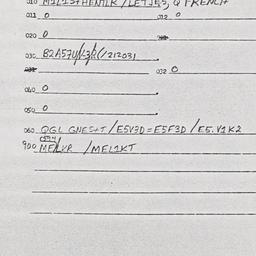 010 M1L1S+HENTLR / LETJES, Q FRENCH
011 0 012 0
020 0
030 B2A57U/K3/R(/212031
032 0
040 0
050 0
060 QGL GNES+T / E5V3D = E5F3D / E5.V1K2
900 ME/LVR / MEL1KT